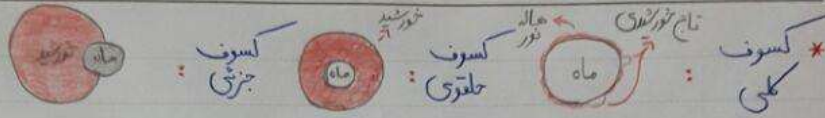 * کسوف کلی :
تاج خورشیدی
هاله نور
ماه
کسوف حلقوی :
خورشید
ماه
کسوف جزئی :
ماه
خورشید